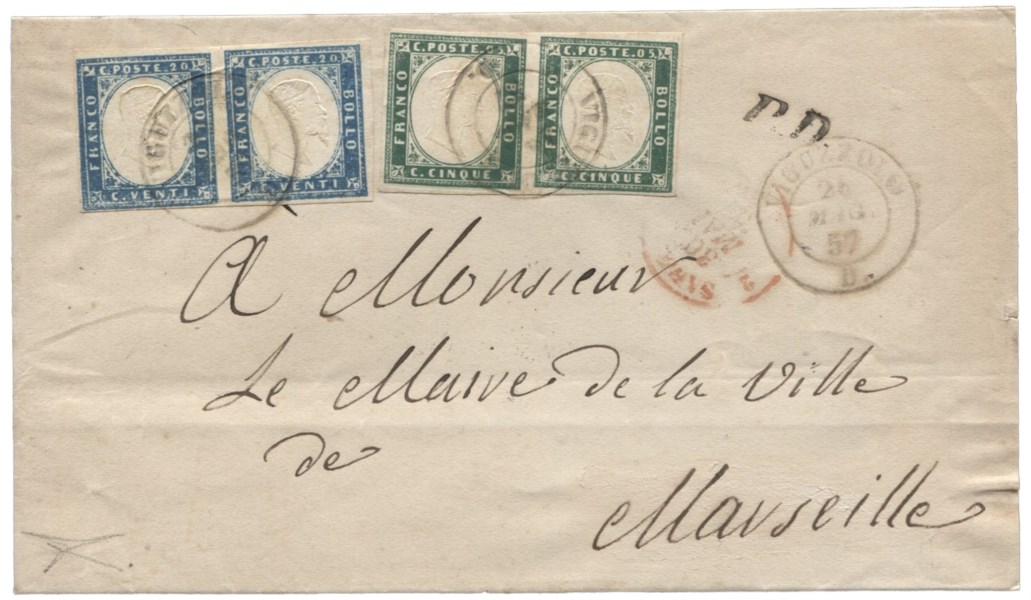 C. POSTE. 20 C. POSTE. 20
FRANCO BOLLO FRANCO BOLLO
C. VENTI C. VENTI
C. POSTE. 05 C. POSTE. 05
FRANCO BOLLO FRANCO BOLLO
C. CINQUE C. CINQUE
P.D.
VIGUZZOLO
MAG.
57
D.
A Monsieur
Le Maire de la Ville
de
Marseille